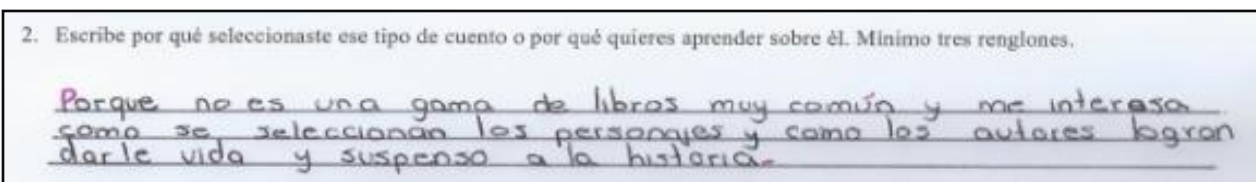 2. Escribe por qué seleccionaste ese tipo de cuento o por qué quieres aprender sobre él. Mínimo tres renglones.
Porque no es una gama de libros muy común y me interesa
como se seleccionan los personajes y como los autores logran
darle vida y suspenso a la historia.